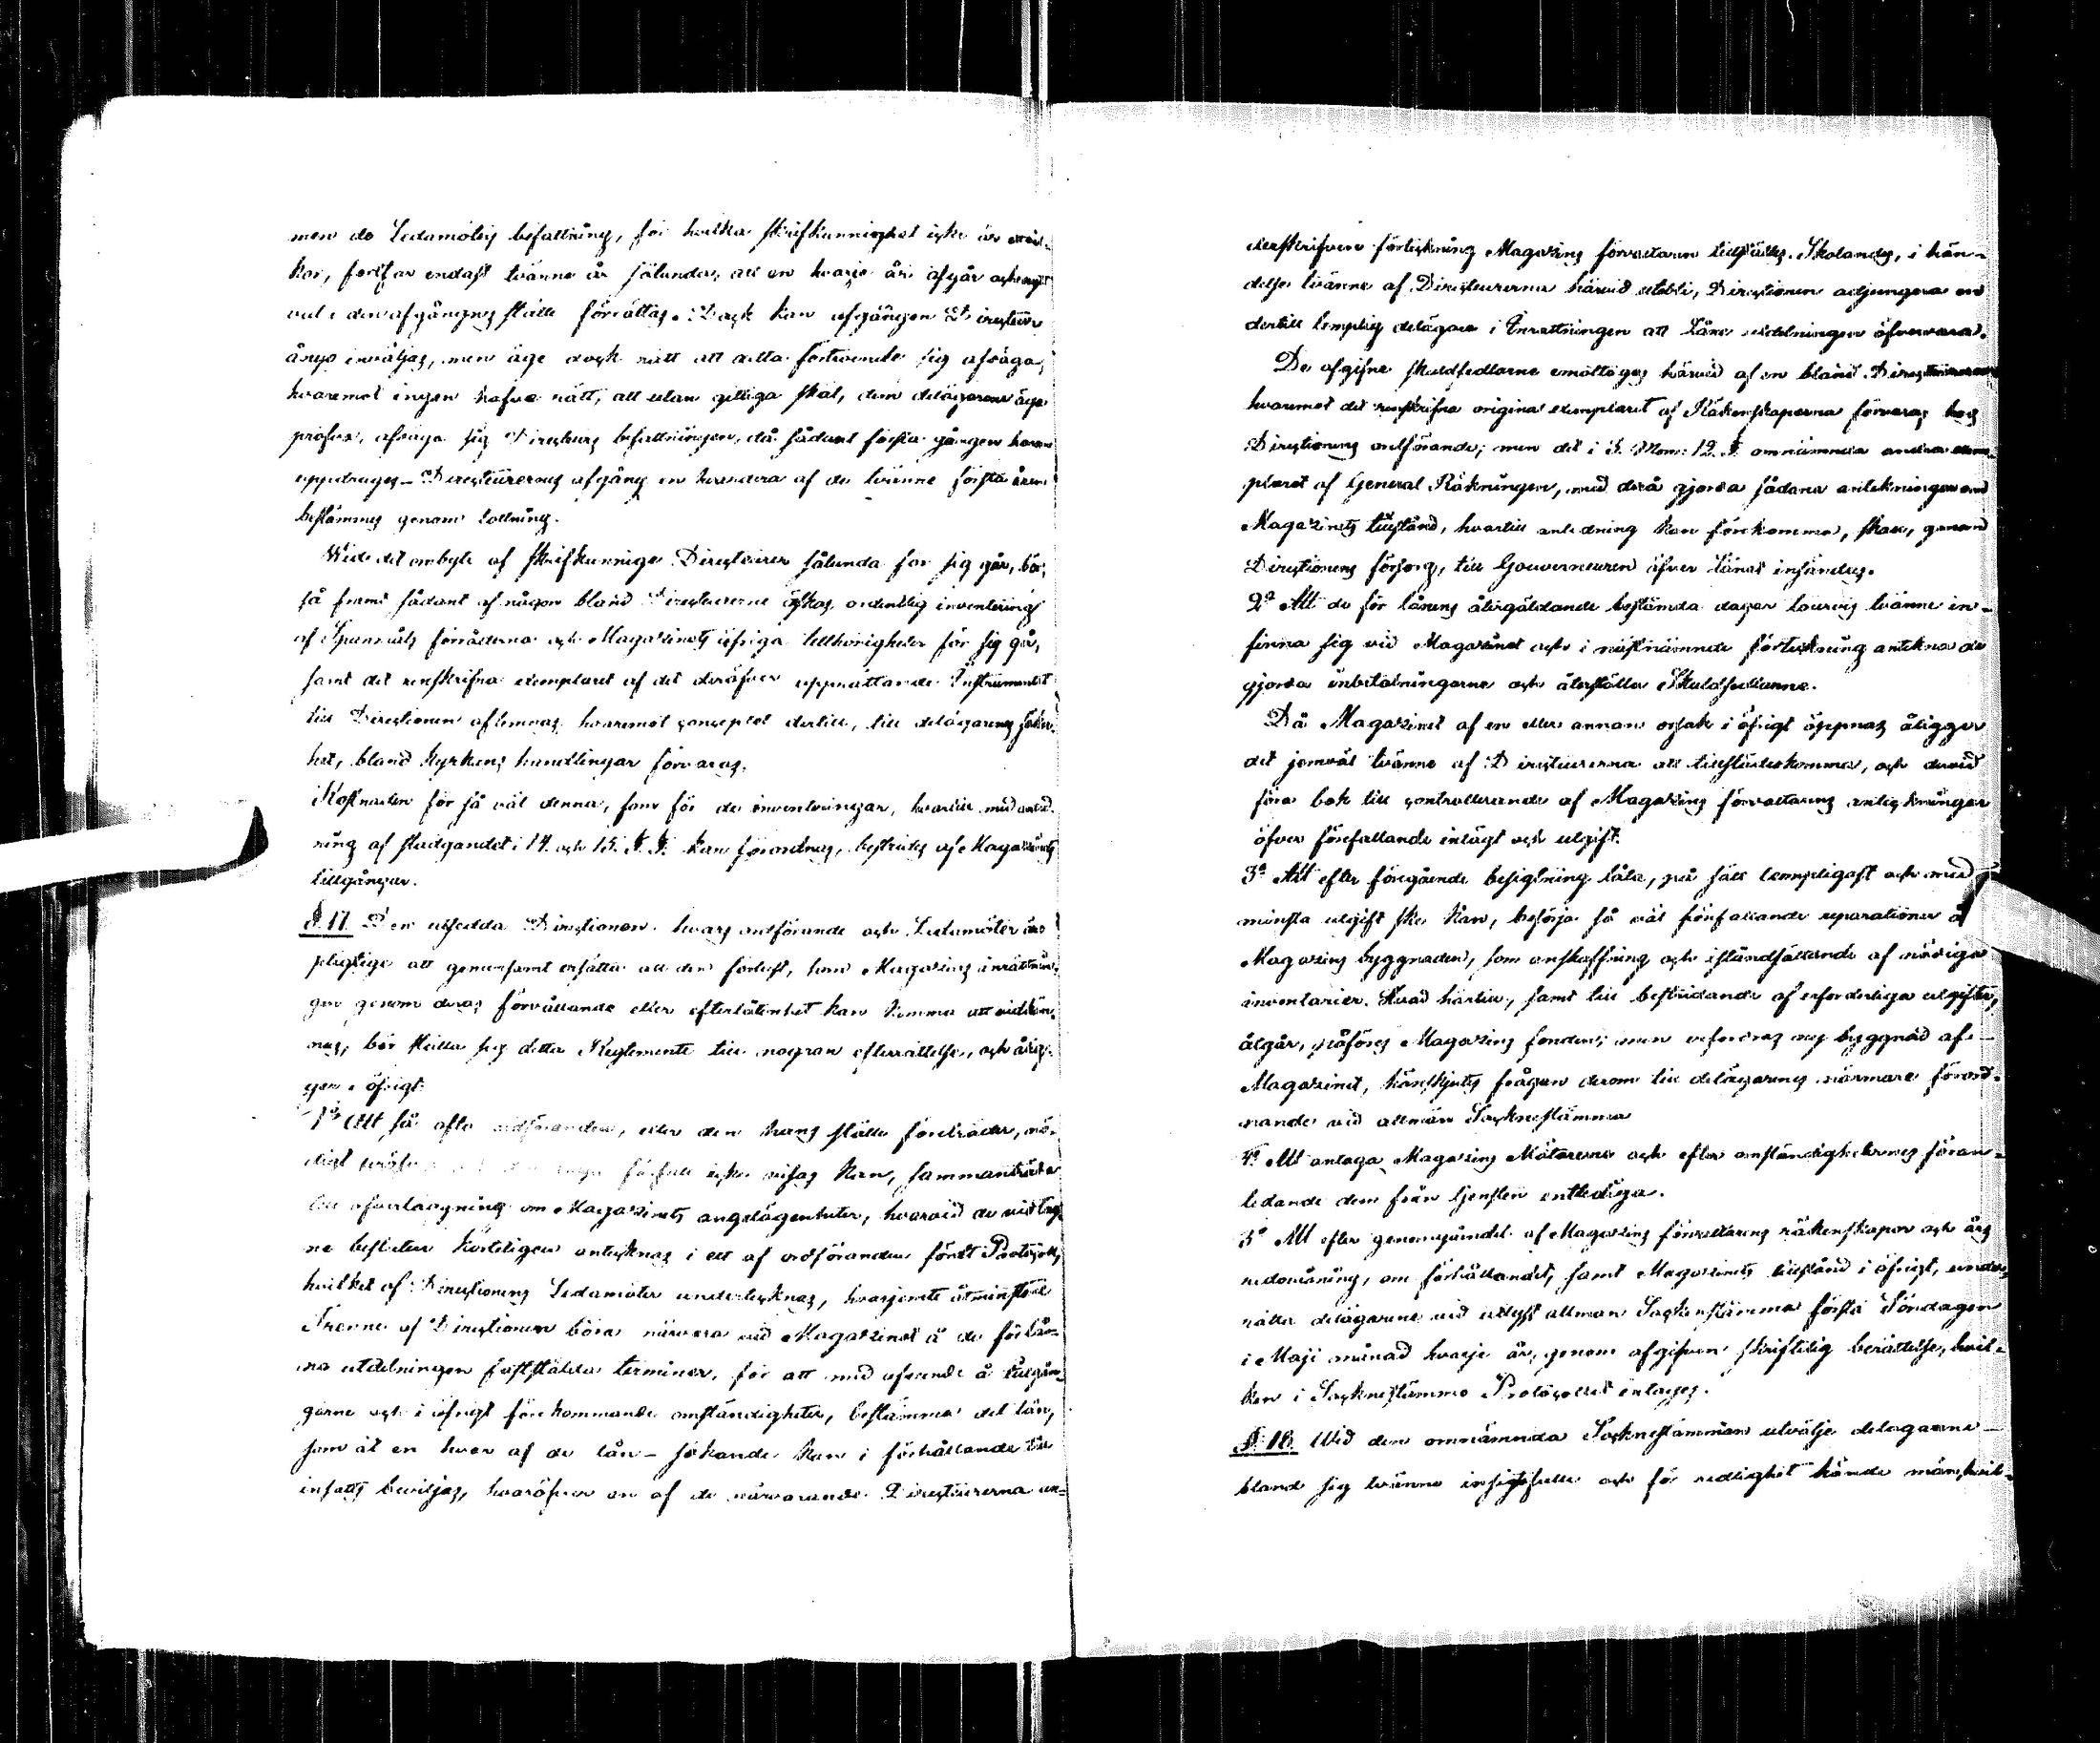 men de Ledamöters befattning, för hvilka skrifkunnighet icke är vill-
kor, fortfar endast tvänne år sålunda, att en hvarje år afgår och nytt
val i den afgångnes ställe förrättas. Dock kan afgången Directeur
ånyo inväljas, men äge dock rätt att detta förtroende sig afsäga,
hvaremot ingen hafve rätt, att utan giltiga skäl, dem delägarene äga
pröfva, afsäga sig Directeurs befattningen, då sådant första gången honom
uppdrages. Directeurernes afgång en hvardera af de tvänne första åren
bestämmes genom lottning.
Wid det ombyte af skrifkunnige Directeurer sålunda för sig går, bör,
så framt sådant af någon bland Directeurerne äskas, ordentlig inventering
af Spannmåls förråderna och Magazinets öfriga tillhörigheter för sig gå,
samt det renskrifna exemplaret af det deröfver upprättande Instrumentet
till Directionen aflemnas, hvaremot conceptet dertill, till delägarenes säker-
het, bland Kyrkans handlingar förvaras.
Kostnaden för så väl denna, som för de inventeringar, hvartill med anled-
ning af stadgandet i 14. och 15. §.§. kan förordnas, bestrides af Magazinets
tillgångar.
§ 17. Den utsedda Directionen, hvars ordförande och Ledamöter äro
pligtige att gemensamt ersätta all den förlust, som Magazins inrättnin-
gen genom deras förvållande eller efterlåtenhet kan komma att vidkän-
nas, bör ställa sig detta Reglemente till nogran efterrättelse, och ålig-
ger i öfrigt:
1º Att så ofta ordföranden, eller den hans ställe företräder, nö-
digt pröfva förfall icke visas kan, sammanträda
till öfverläggning om Magazinets angelägenheter, hvarvid de vidtag-
ne besluten korteligen antecknas i ett af ordföranden fördt Protocoll,
hvilket af Directionens Ledamöter undertecknas, hvarjemte åtminstone
Trenne af Directionen böra närvara vid Magazinet å de för lå-
na utdelningen fastställda terminer, för att med afseende å tillgån-
garne och i öfrigt förekommande omständigheter, bestämma det lån,
som åt en hvar af de lån-sökande kan i förhållande till
insatts beviljas, hvaröfver en af de närvarande Directeurerna un-
derskrifven förteckning Magazins förvaltaren tillställes. Skolandes, i hän-
delse tvänne af Directeurerna härvid utebli, Directionen adjungera en
dertill lemplig delägare i Inrättningen att Låne utdelningen öfvervara.
De afgifne skuldsedlarne emottages härvid af en bland Directeurerne
hvaremot det renskrifna original exemplaret af Räkenskaperna förvaras hos
Directionens ordförande; men det i 3. Mom: 12. §. omnämnda andra exem-
plaret af General Räkningen, med derå gjorda sådana anteckningar om
Magazinets tillstånd, hvartill anledning kan förekomma, skall, genom
Directionens försorg, till Gouverneuren öfver Länet insändas.
2º Att de för lånens återgäldande bestämda dagar tourvis tvänne in-
finna sig vid Magazinet och i nästnämnde förteckning anteckna de
gjorda inbetalningarne och återställa Skuldsedlarne.
Då Magazinet af en eller annan orsak i öfrigt öppnas åligger
det jemväl tvänne af Directeurerna att tillstädeskomma, och dervid
föra bok till controllerande af Magazins förvaltarens anteckningar
öfver förefallande intägt och utgift.
3º Att efter föregående besigtning låta, på sätt lempligast och med
minsta utgift ske kan, besörja så väl förefallande reparationer å
Magazins byggnaden, som anskaffning och iståndsättande af nödiga
inventarier. Hvad härtill, samt till bestridande af erforderliga utgifter,
åtgår, påföres Magazins fonden; men erfordras ny byggnad af
Magazinet, hänskjutes frågan derom till delägarenes närmare förord-
nande vid allmän Sockenstämma
4º Att antaga Magazins Mätarena och efter omständigheternes föran-
ledande dem från tjensten entlediga.
5º Att efter genomgåendet af Magazins förvaltarens räkenskaper och års
redovisning, om förhållandet, samt Magazinets tillstånd i öfrigt, under-
rätta delägarene vid utlyst allmän Sockenstämma första Söndagen
i Maji månad hvarje år, genom afgifven skriftelig berättelse, hvil-
ken i Sockenstämmo Protocollet intages.
§ 18. Wid den omnämnda Sockenstämman utvälje delägarene
bland sig tvänne insigtsfulle och för redlighet kände män, hvil-